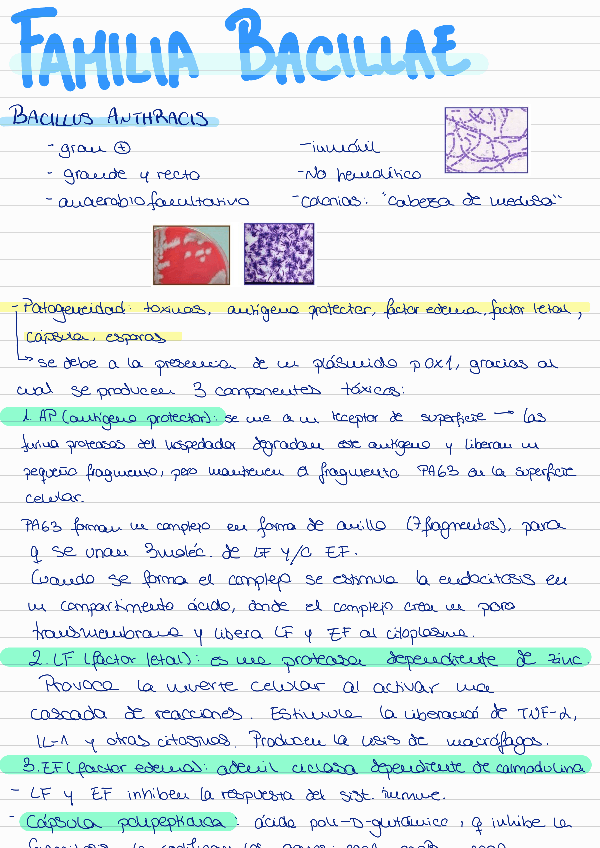 FAMILIA BACILLAE
BACILLUS ANTHRACIS
- gram ⊕
- inmóvil
- grande y recto
- No hemolítico
- anaerobio facultativo
- colonias: "cabeza de medusa"
- Patogeneidad: toxinas, antígeno protector, factor edema, factor letal,
cápsula, esporas
↳ se debe a la presencia de un plásmido pOX1, gracias al
cual se producen 3 componentes tóxicos:
1. AP (antígeno protector): se une a un receptor de superficie → las
furina proteasas del hospedador degradan este antígeno y liberan un
pequeño fragmento, pero mantienen el fragmento PA63 en la superficie
celular.
PA63 forman un complejo en forma de anillo (7 fragmentos), para
q se unan 3 moléc. de LF y/o EF.
Cuando se forma el complejo se estimula la endocitosis en
un compartimento ácido, donde el complejo crea un poro
transmembrana y libera LF y EF al citoplasma.
2. LF (factor letal): es una proteasa dependiente de zinc.
Provoca la muerte celular al activar una
cascada de reacciones. Estimula la liberació de TNF-α,
IL-1 y otras citosinas. Producen la lisis de macrófagos.
3. EF (factor edema): adenil ciclasa dependiente de calmodulina
- LF y EF inhiben la respuesta del sist. inmune.
- Cápsula polipeptídica: ácido poli-D-glutámico, q inhibe la